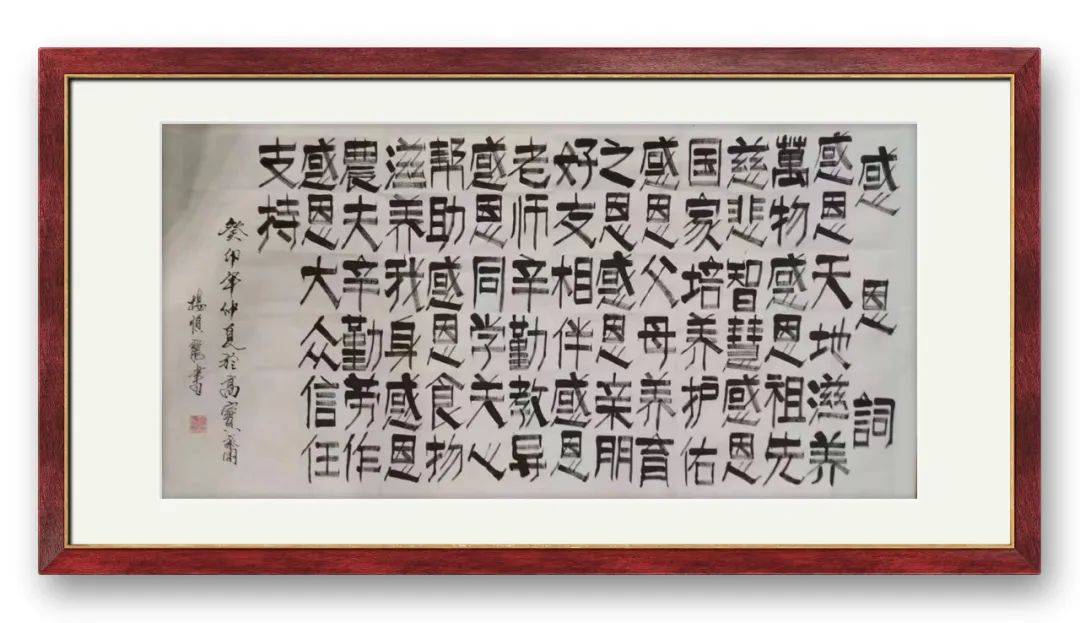 感恩詞
感恩天地滋养
萬物感恩祖先
慈悲智慧感恩
国家培养护佑
感恩父母养育
之恩感恩亲朋
好友相伴感恩
老师辛勤教导
感恩同学关心
帮助感恩食物
滋养我身感恩
農夫辛勤劳作
感恩大众信任
支持
癸卯年仲夏於高寶齋
楊書